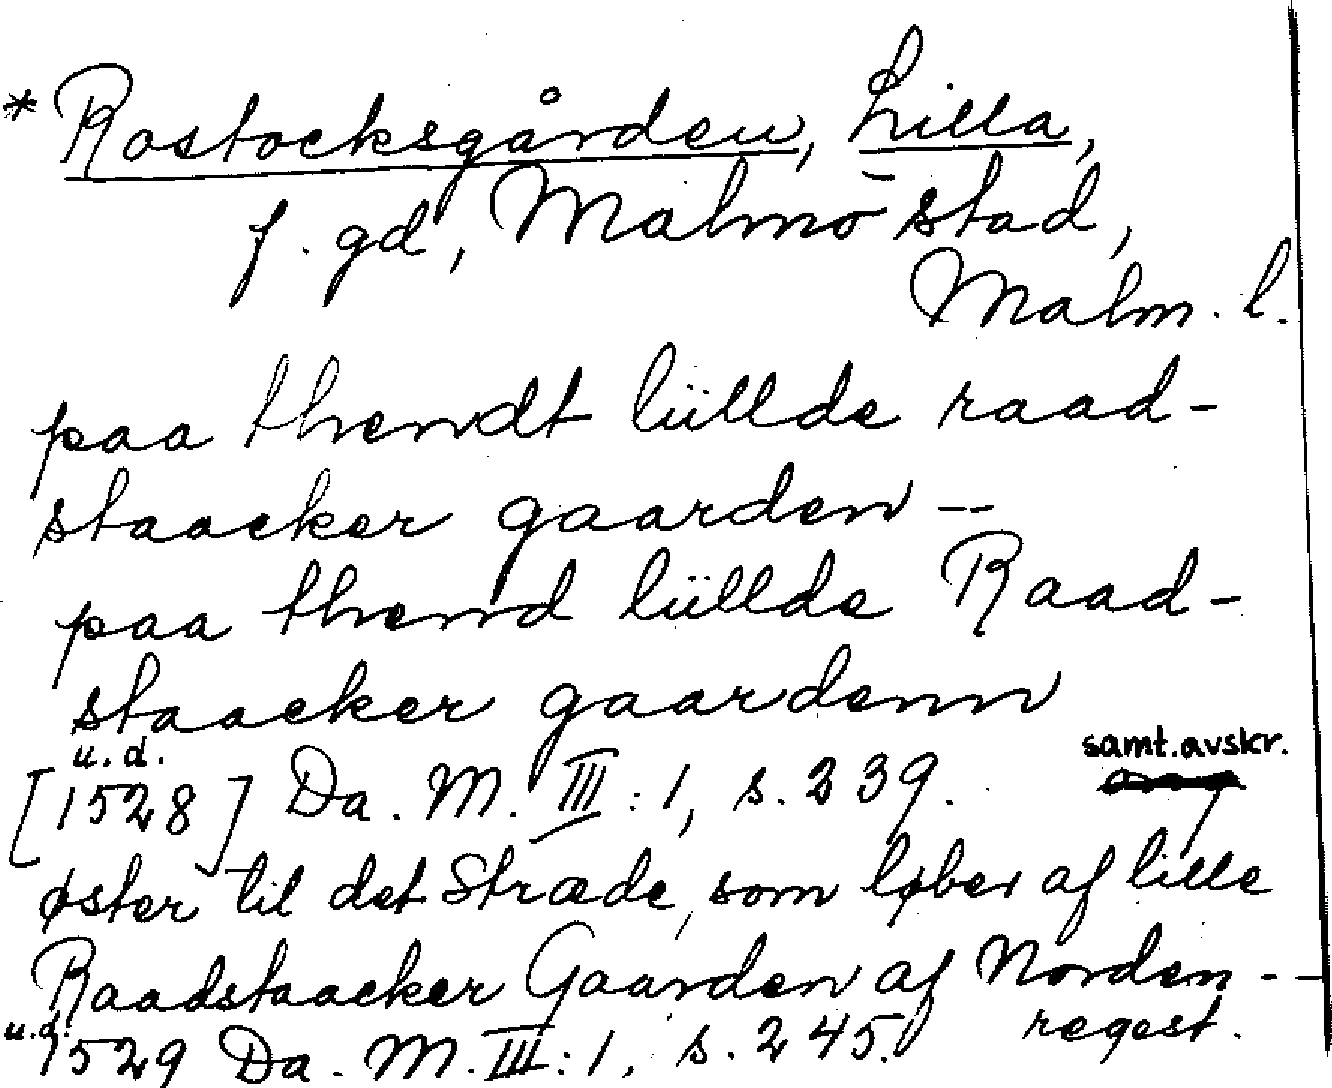 * Rostocksgården, Lilla,
f. gd, Malmö stad,
Malm. l.
paa thendt lüllde raad-
staacker gaarden --
paa thend lüllde Raad-
staacker gaardenn
u. d.
[1528] Da. M. III:1, s. 239. samt.avskr.
øster til det Stræde, som løber af lille
Raadstaacker Gaarden af Norden --
u.d. 1529 Da. M. III:1, s. 245. regest.